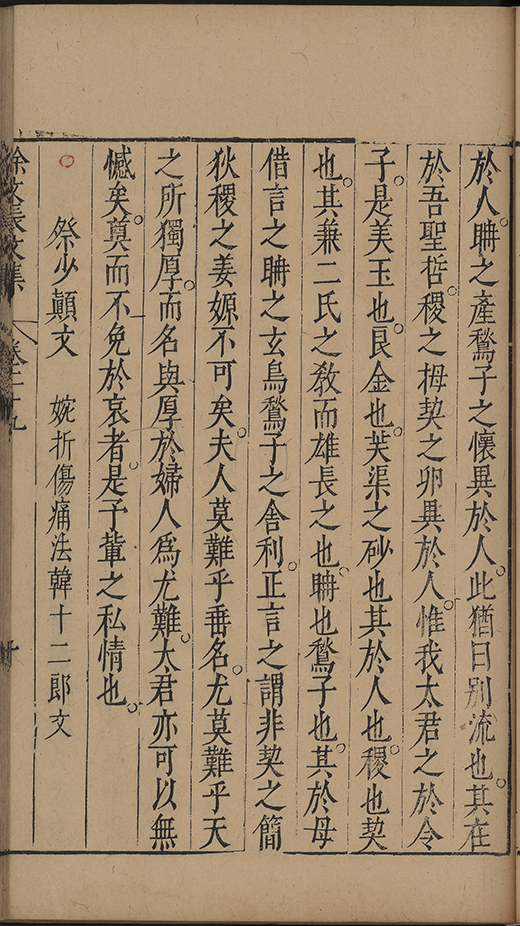 於人。聃之產鶖子之懷異於人。此猶曰別流也。其在
於吾聖哲。稷之拇契之卵異於人。惟我太君之於令
子。是美玉也。良金也。芙渠之砂也其於人也。稷也契
也。其兼二氏之敎而雄長之也。聃也鶖子也。其於母
借言之聃之玄鳥鶖子之舍利。正言之謂非契之簡
狄稷之姜嫄不可矣。夫人莫難乎垂名。尤莫難乎天
之所獨厚。而名與厚於婦人爲尤難。太君亦可以無
憾矣。奠而不免於哀者。是予輩之私情也。
祭少顛文 婉折傷痛法韓十二郎文
徐文長文集 卷二十九 十